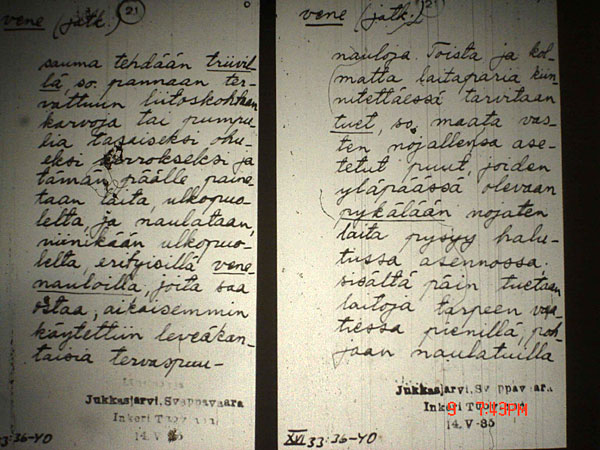 vene (jatk.) 21
sauma tehdään triivil-
lä, so. pannaan ter-
vattuun liitoskohtaan
karvoja tai pumpu-
lia tasaiseksi ohu-
eksi kerrokseksi ja
tämän päälle paine-
taan laita, ulkopuo-
lelta, ja naulataan,
niinikään ulkopuo-
lelta, erityisillä vene-
nauloilla, joita saa
ostaa, aikaisemmin
käytettiin leveäkan-
taisia tervaspuu-
Jukkasjarvi, Svappavaara
Inkeri
14. V
33:36-40
vene (jatk.)
nauloja. Toista ja kol-
matta laitaparia kiin-
nitettäessä tarvitaan
tuet, so. maata vas-
ten nojallensa ase-
tetut puut, joiden
yläpäässä olevaan
pykälään nojaten
laita pysyy halu-
tussa asennossa.
sisältä päin tuetaan
laitoja tarpeen vaa-
tiessa pienillä, poh-
jaan naulatuilla
Jukkasjarvi, Svappavaara
Inkeri
14. V-35
XVI 33:36-40
7:43PM